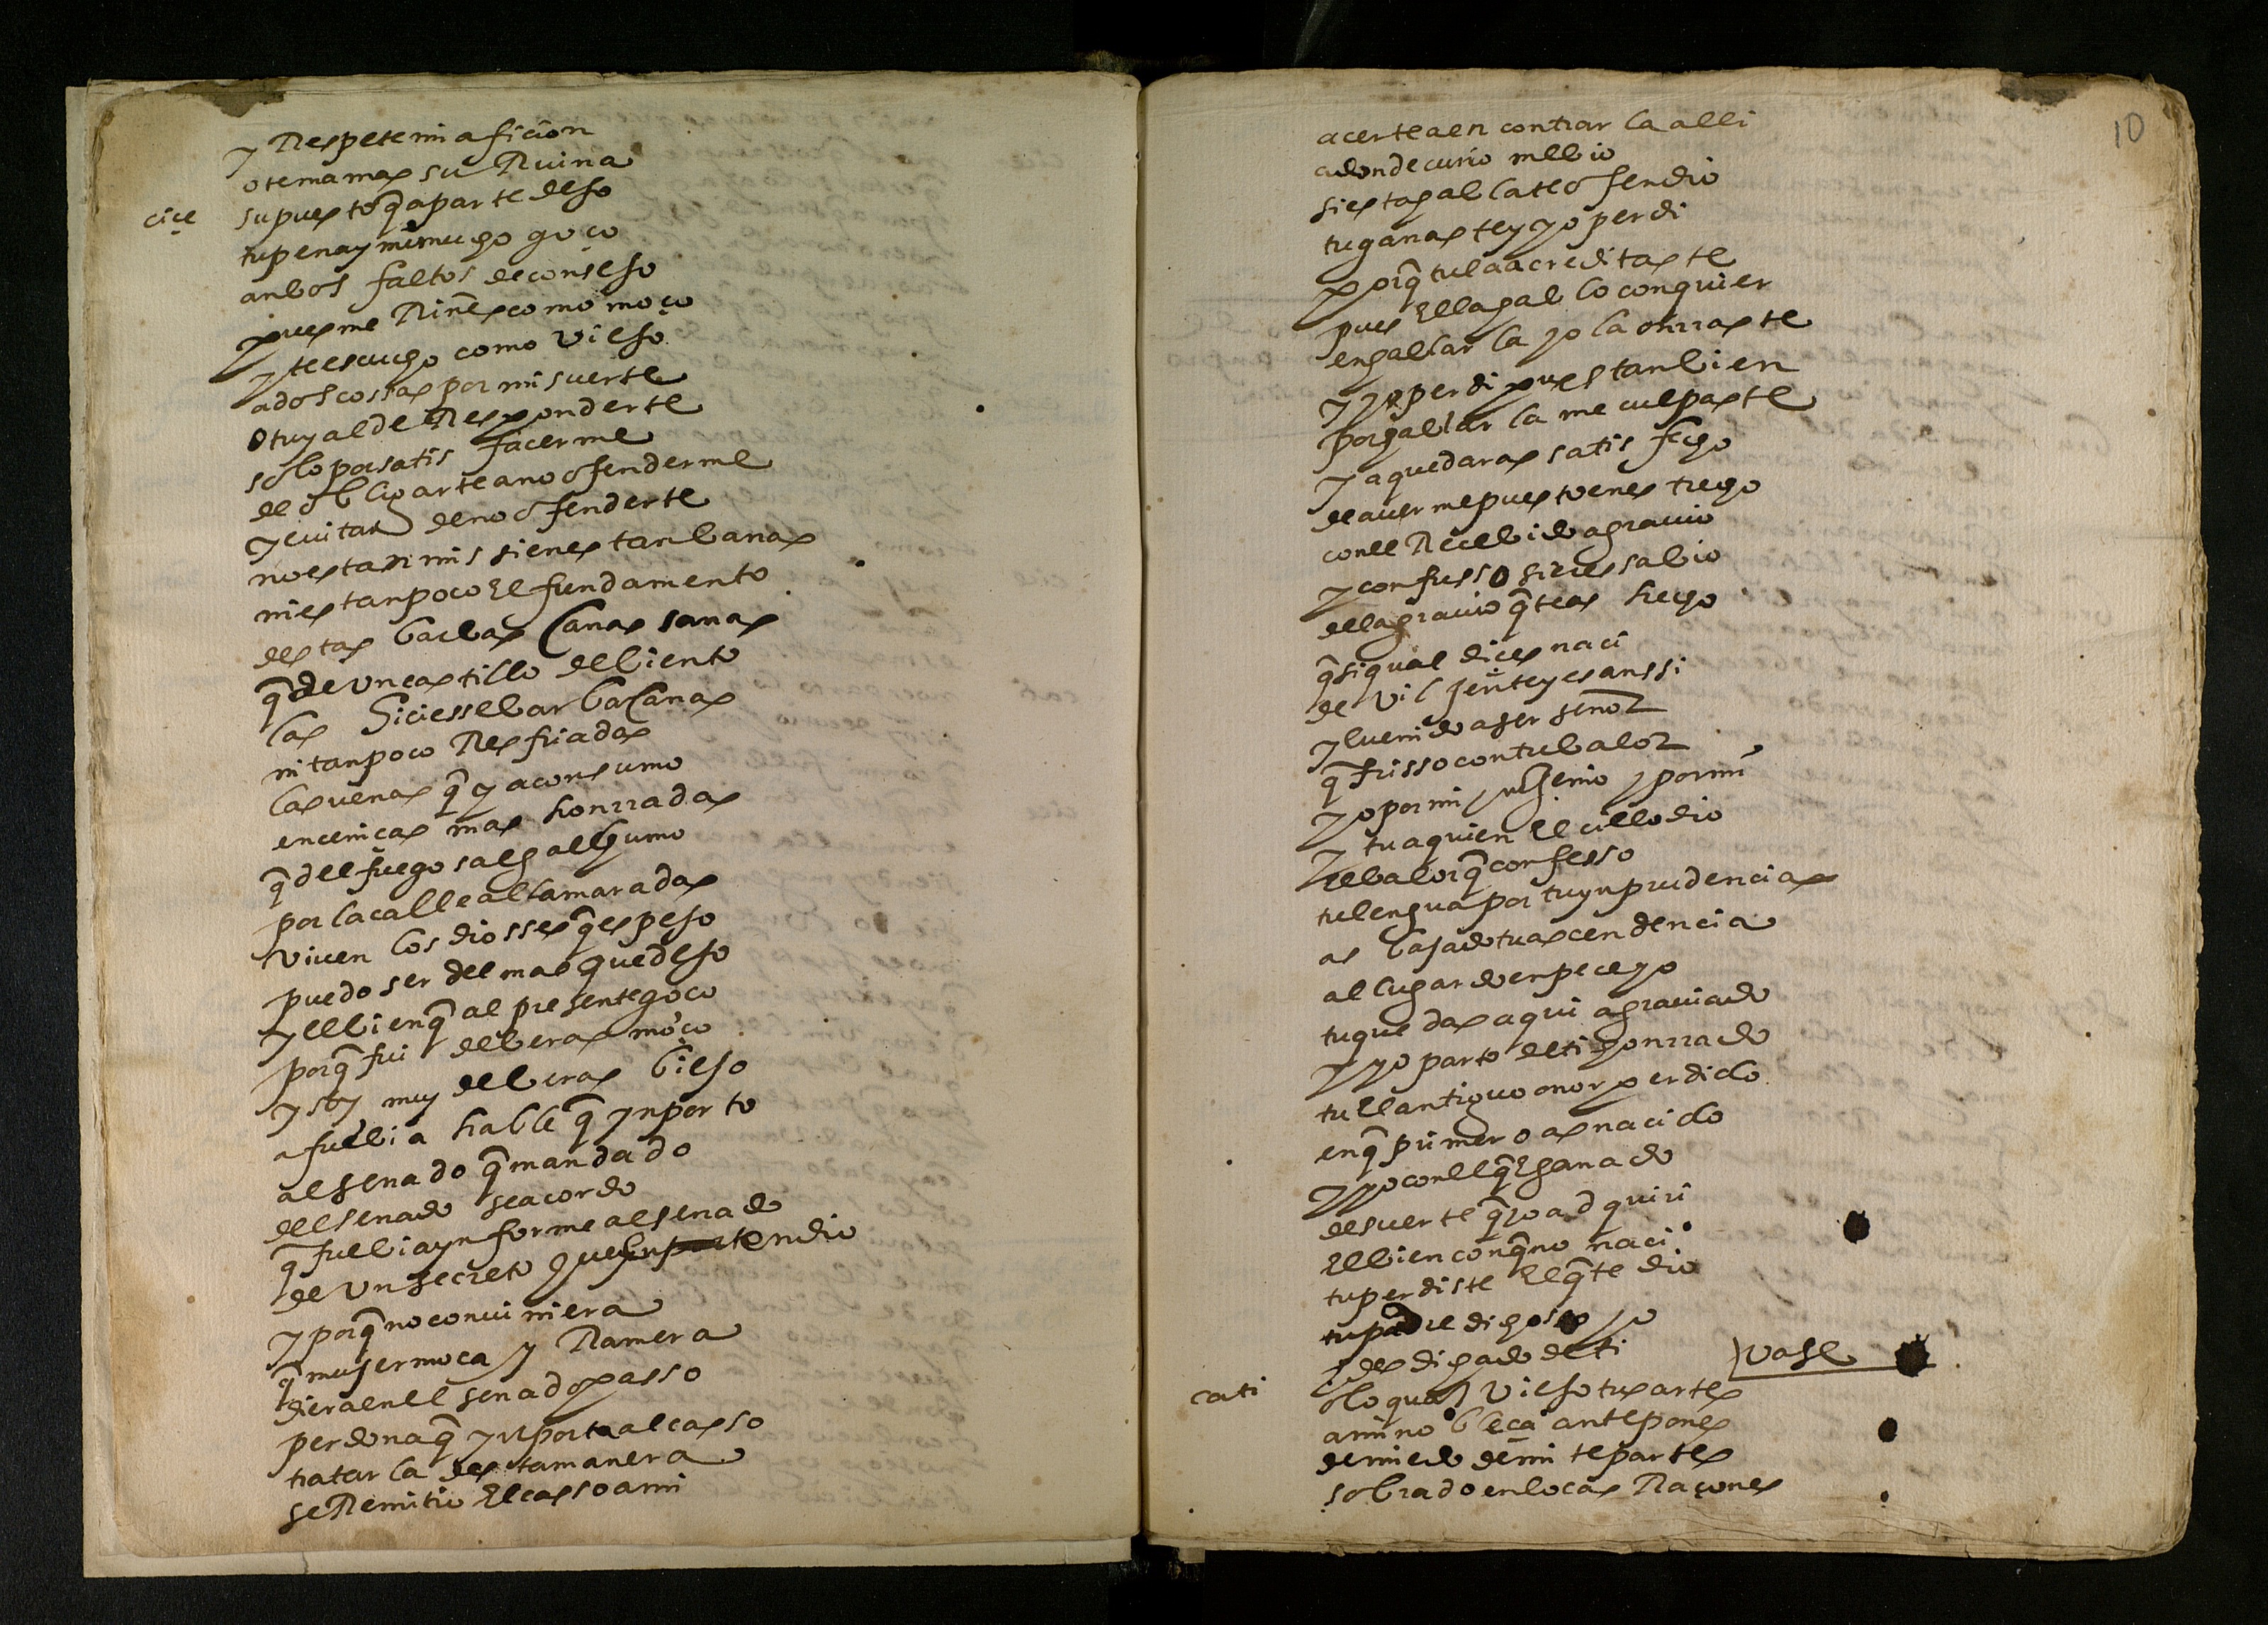 y Respete mi aficion
o tema mas su Ruina
cice supuesto q̃ aparte deso
tu pena y mi mucho goço
anbos faltos de consejo
pues me Riñes como moço
y te escucho como viejo
a dos cossas por mi suerte
o tuyal de Responderte
solo por satisfacerme
de obligarte a no ofenderme
y euitar de no ofenderte
no estan mis sienes tan banas
ni es tanpoco El fundamento
destas barbas canas sanas
q̃ de un castillo de biento
las hiciesse barbacanas
ni tanpoco Resfriadas
las uenas q̃ ya consumo
en ceniças mas honrradas
q̃ del fuego salga el humo
por la calle a llamaradas
viuen los diosses q̃ es peso
puedo ser del mas que deso
y el bien q̃ al presente goço
porq̃ fui de beras moço
y soy muy de beras biejo
a fulbia hable q̃ ynporto
al senado q̃ mandado
del senado se acordo
q̃ fulbia ynforme al senado
de un secreto que entendio
y porq̃ no conuiniera
q̃ mujer moca y Ramera
diera en el senado passo
perdona q̃ ynporta al casso
tratarla desta manera
se Remitio El casso a mi
10
acerte a encontrarla alli
adonde curio me bio
si estas alla te ofendio
tu ganaste y yo perdi
porq̃ tu la acreditaste
pues Ella hablo con quier
en hablarla yo la onrraste
y yo perdi pues tanbien
por hablarla me culpaste
ya quedaras satisfecho
de auerme puesto en estrecho
con el Recebido agrauio
y confusso si eres sabio
del agrauio q̃ te as hecho
q̃ si qual dices naci
de vil jente y es anssi
y e uenido a ser señor
q̃ frisso con tu balor
yo por mi yngenio y por mi
y tu a quien El cielo dio
el balor q̃ confesso
tu lengua por tu ynprudencia
as bajado tu ascendencia
al lugar do enpece yo
tu quedas aqui agrauiado
y yo parto de ti honrrado
tu El antiguo onor perdido
en q̃ primero as nacido
y yo con el q̃ E ganado
de suerte q̃ yo adquiri
El bien con q̃ no naci
tu perdiste El q̃ te dio
tu padre dichosso yo
y desdichado de ti vase
cati loquo viejo tu partes
a mi nobleca antepones
de miedo de mi te partes
sobrado en locas Raçones